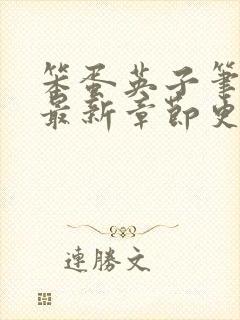 笨蛋英子筆
最新章節史
連勝文